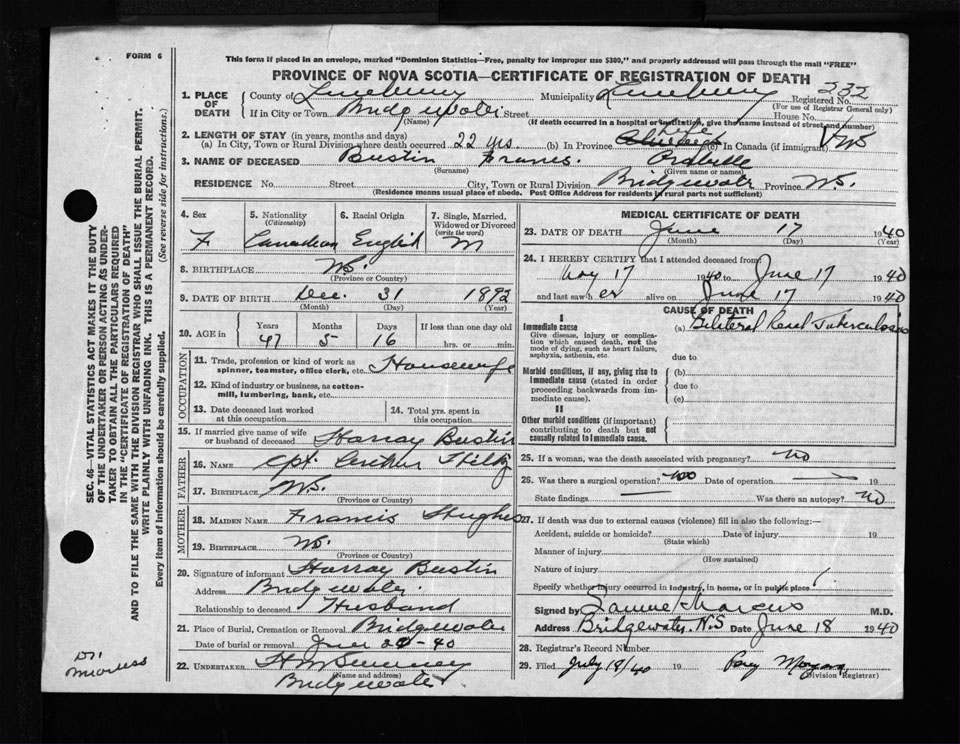 FORM 6
This form if placed in an envelope, marked "Dominion Statistics—Free, penalty for improper use $300," and properly addressed will pass through the mail "FREE"
PROVINCE OF NOVA SCOTIA—CERTIFICATE OF REGISTRATION OF DEATH
1. PLACE OF DEATH
County of Lunenburg Municipality Lunenburg Registered No. 232
(For use of Registrar General only)
If in City or Town Bridgewater Street House No.
(Name) (If death occurred in a hospital or institution, give the name instead of street and number)
2. LENGTH OF STAY (in years, months and days)
(a) In City, Town or Rural Division where death occurred 22 yrs. (b) In Province Life (c) In Canada (if immigrant)
3. NAME OF DECEASED Bustin Frances
(Surname) (Given name or names)
RESIDENCE No. Street City, Town or Rural Division Bridgewater Province N.S.
(Residence means usual place of abode. Post Office Address for residents in rural parts not sufficient)
4. Sex F
5. Nationality (Citizenship) Canadian
6. Racial Origin English
7. Single, Married, Widowed or Divorced (write the word) M
8. BIRTHPLACE N.S.
(Province or Country)
9. DATE OF BIRTH Dec. 31 1892
(Month) (Day) (Year)
10. AGE in Years Months Days If less than one day old
47 5 16 hrs. or min.
OCCUPATION
11. Trade, profession or kind of work as spinner, teamster, office clerk, etc. Housewife
12. Kind of industry or business, as cotton-mill, lumbering, bank, etc.
13. Date deceased last worked at this occupation
14. Total yrs. spent in this occupation
15. If married give name of wife or husband of deceased Harray Bustin
FATHER
16. NAME Cpt. Arthur
17. BIRTHPLACE N.S.
(Province or Country)
MOTHER
18. MAIDEN NAME Francis Hughes
19. BIRTHPLACE N.S.
(Province or Country)
20. Signature of informant Harray Bustin
Address Bridgewater
Relationship to deceased Husband
21. Place of Burial, Cremation or Removal Bridgewater
Date of burial or removal June 20-40
22. UNDERTAKER
(Name and address)
Bridgewater
MEDICAL CERTIFICATE OF DEATH
23. DATE OF DEATH June 17 1940
(Month) (Day) (Year)
24. I HEREBY CERTIFY that I attended deceased from:
17 1940 to June 17 1940
and last saw her alive on June 17 1940
CAUSE OF DEATH
I
Immediate cause (a) Bilateral Renal Tuberculosis
Give disease, injury or complication which caused death, not the mode of dying, such as heart failure, asphyxia, asthenia, etc.
due to
Morbid conditions, if any, giving rise to immediate cause (stated in order proceeding backwards from immediate cause).
(b)
due to
(c)
II
Other morbid conditions (if important) contributing to death but not causally related to immediate cause.
25. If a woman, was the death associated with pregnancy? no
26. Was there a surgical operation? no Date of operation 19
State findings Was there an autopsy? no
27. If death was due to external causes (violence) fill in also the following:—
Accident, suicide or homicide? Date of injury 19
(State which)
Manner of injury
(How sustained)
Nature of injury
Specify whether injury occurred in industry, in home, or in public place
Signed by Samuel Marcus M.D.
Address Bridgewater, N.S Date June 18 1940
28. Registrar's Record Number
29. Filed July 18/40 19
(Division Registrar)
SEC. 46—VITAL STATISTICS ACT MAKES IT THE DUTY
OF THE UNDERTAKER OR PERSON ACTING AS UNDER-
TAKER TO OBTAIN ALL THE PARTICULARS REQUIRED
IN THE "CERTIFICATE OF REGISTRATION OF DEATH"
AND TO FILE THE SAME WITH THE DIVISION REGISTRAR WHO SHALL ISSUE THE BURIAL PERMIT.
WRITE PLAINLY WITH UNFADING INK. THIS IS A PERMANENT RECORD.
Every item of Information should be carefully supplied. (See reverse side for instructions.)